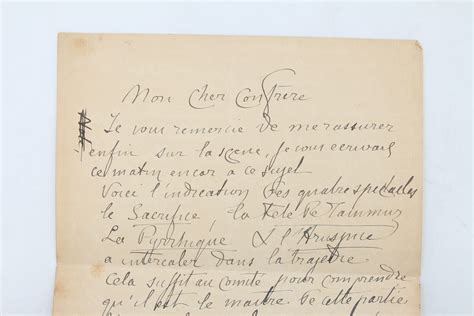 Mon cher confrere
Je vous remercie de me rassurer
enfin sur la scene, je vous ecrivais
ce matin encor a ce sujet
Voici l'indication des quatre spectacles
le Sacrifice, la Fete de Tammuz
La Pyrrhique & l'Aruspice
a intercaler dans la tragedie
Cela suffit au comite pour comprendre
qu'il est le maitre de cette partie